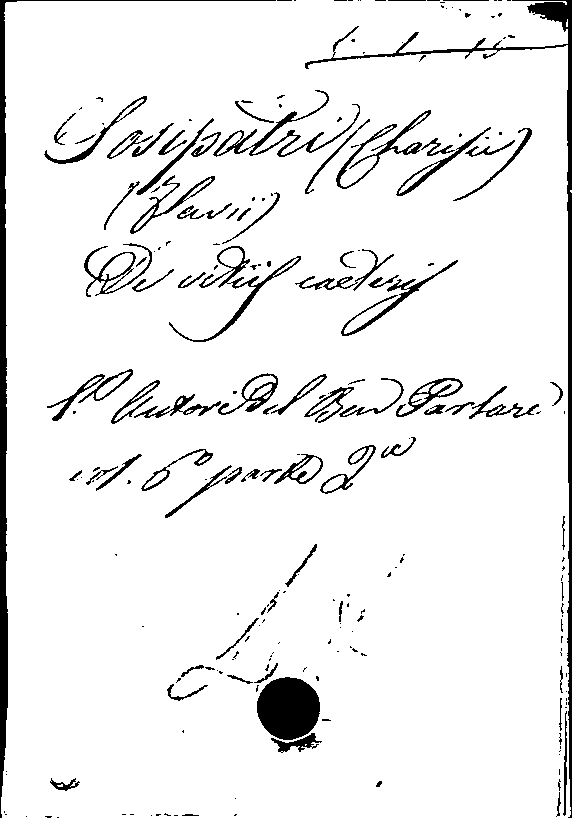 Sosipatri (Charisii)
(Flavii)
De vitiis caeteris
Autori del Ben Parlare
vol. 6º parte 2ª